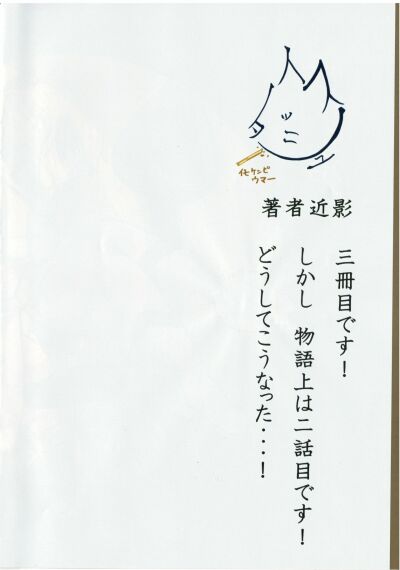 人
人
タ
ツ
ニ
ユ
化ケンビ
ウマー
著者近影
三冊目です！
しかし　物語上は二話目です！
どうしてこうなった・・・！